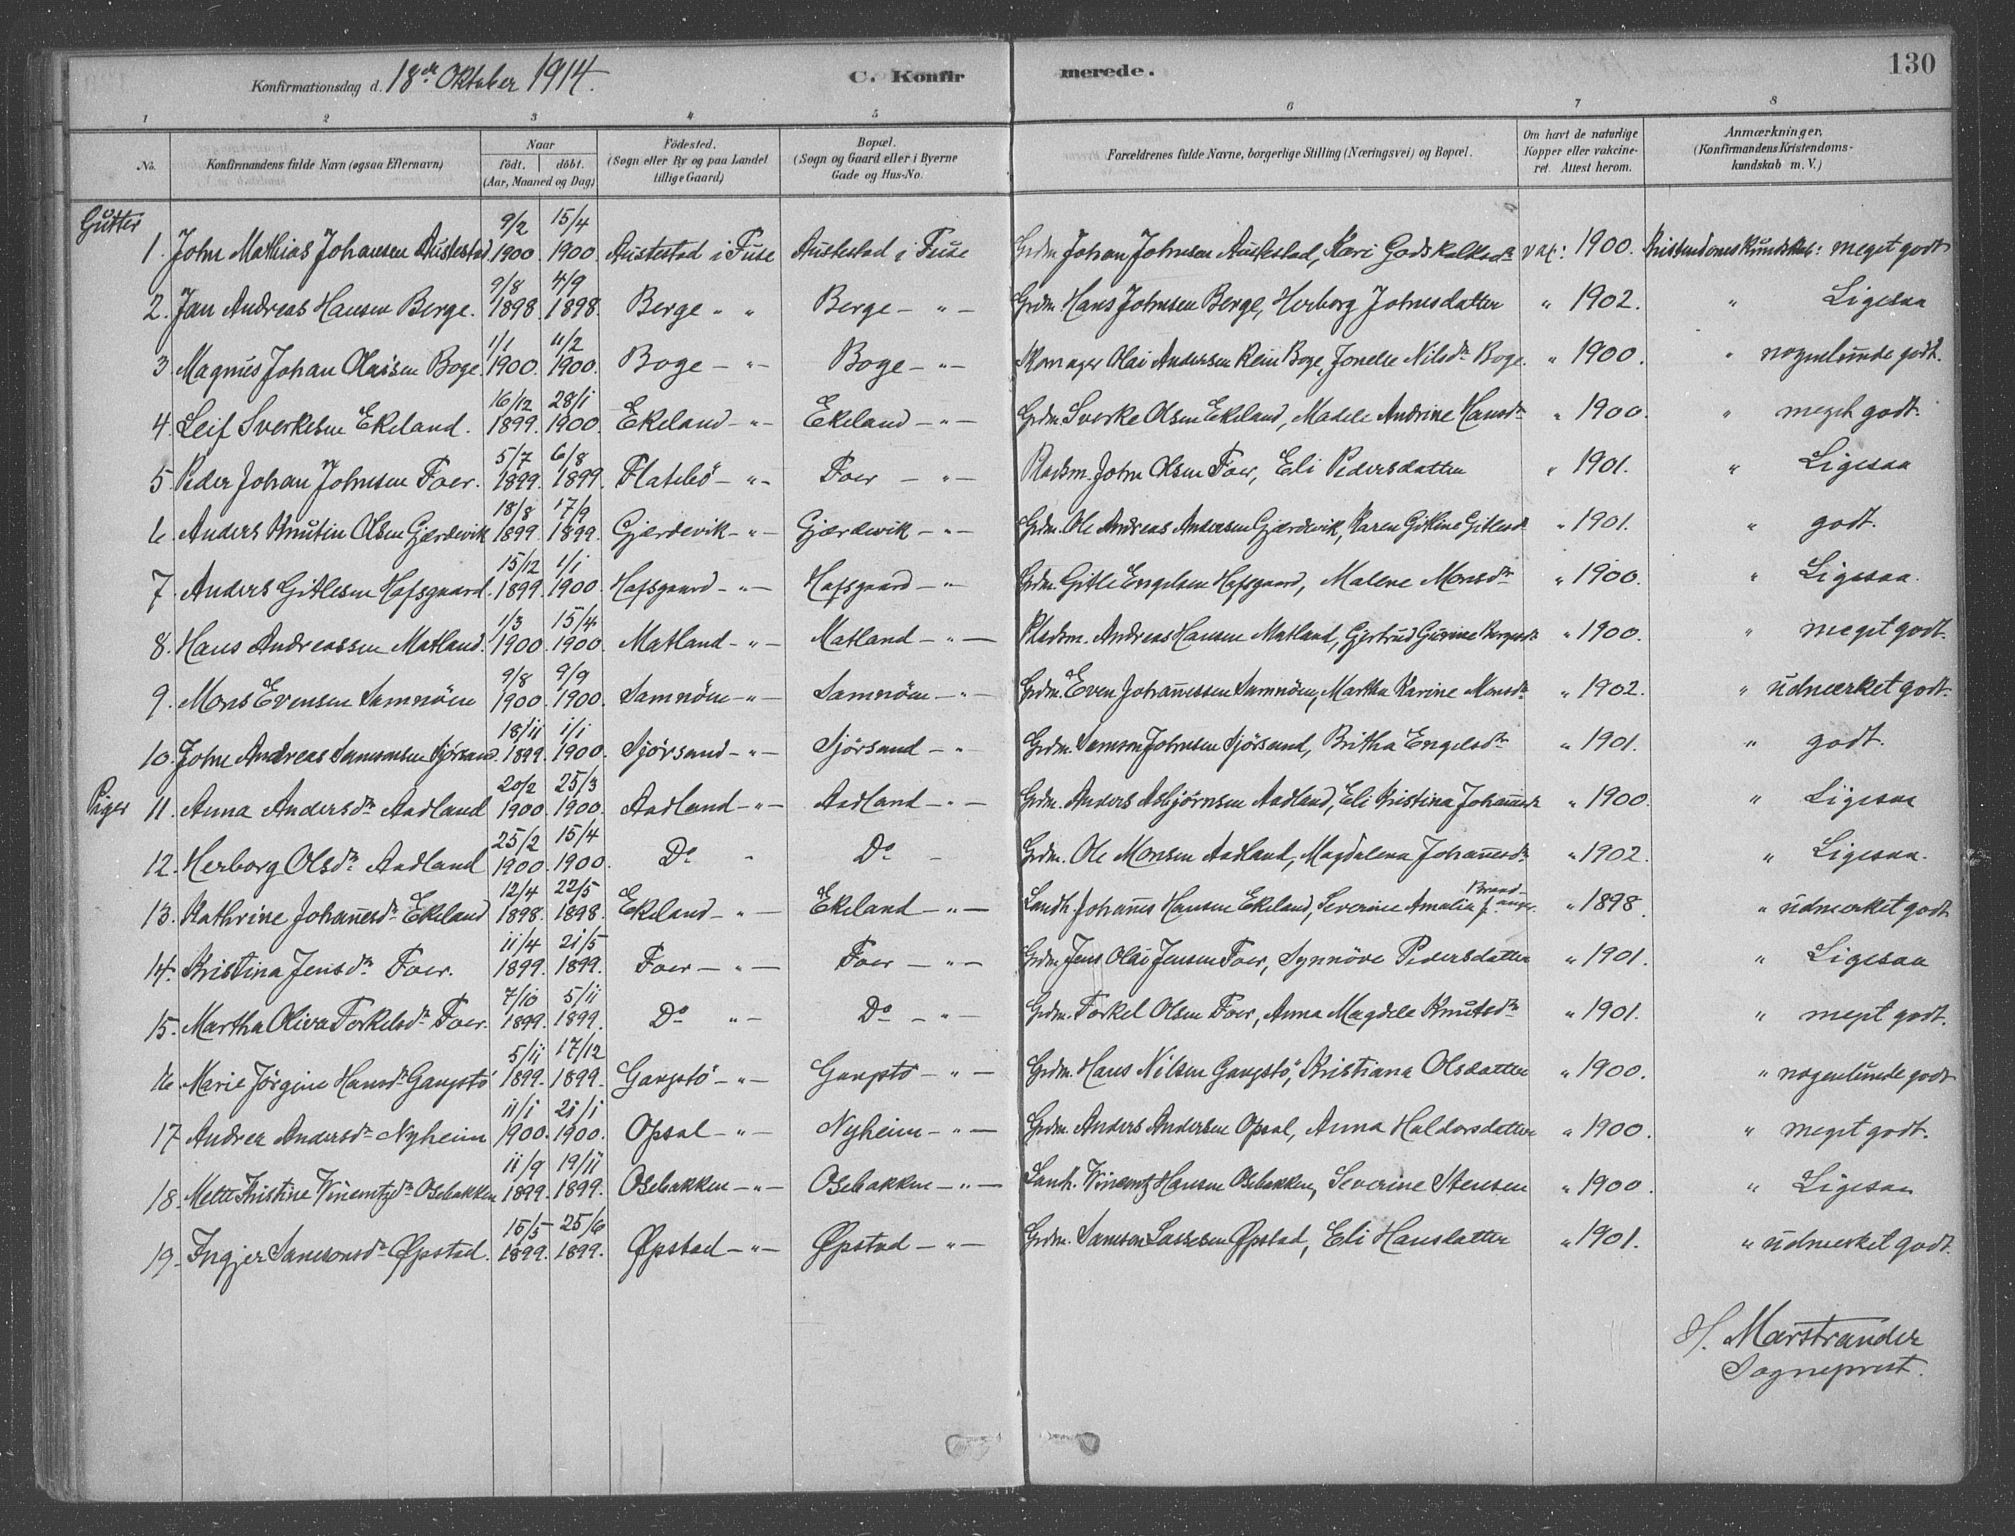 Konfirmationsdag d. 18de Oktober 1914. C. Konfir merede. 130
1 2 3 4 5 6 7 8
No. Konfirmandens fulde Navn (ogsaa Efternavn) Naar født, døbt. (Aar, Maaned og Dag) Födested. (Sogn eller By og paa Landet tillige Gaard) Bopæl. (Sogn og Gaard eller i Byerne Gade og Hus-No. Forældrenes fulde Navne, borgerlige Stilling (Næringsvei) og Bopæl. Om havt de naturlige Kopper eller vakcineret. Attest herom. Anmærkninger, (Konfirmandens Kristendomskundskab m. V.)
Gutter
1. John Mathias Johansen Austestad 9/2 1900 15/4 1900 Austestad i Fuse Austestad i Fuse Grdm. Johan Johnsen Austestad, Kari Godskalksdr vax: 1900. Kristendomskundskab: meget godt
2. Jan Andreas Hansen Berge. 9/8 1898 4/9 1898 Berge " " Berge – " – Grdm. Hans Johnsen Berge, Herborg Johnsdatter " 1902. " Ligesaa
3. Magnus Johan Olaisen Boge. 1/1 1900. 11/2 1900. Boge – " – Boge – " – Skomager Olai Andersen Rein Boge, Jonelle Nilsdr Boge. " 1900. " nogenlunde godt.
4. Leif Sverkesen Ekeland. 16/12 1899. 28/1 1900. Ekeland – " – Ekeland – " – Grdm. Sverke Olsen Ekeland, Madele Andrine Hansdr " 1900. " meget godt.
5. Peder Johan Johnsen Foer. 5/7 1899. 6/8 1899. Flatebö – " – Foer – " – Pladsm. John Olsen Foer, Eli Pedersdatter " 1901. " Ligesaa
6. Anders Knutin Olsen Gjærdevik 18/8 1899 17/9 1899. Gjærdevik – " – Gjærdevik – " – Grdm. Ole Andreas Andersen Gjærdevik, Karen Gitline Gitlesdr " 1901. " godt.
7. Anders Gitlesen Hafsgaard. 15/12 1899. 1/1 1900. Hafsgaard – " – Hafsgaard – " – Grdm. Gitle Engelsen Hafsgaard, Malene Monsdr " 1900. " Ligesaa.
8. Hans Andreassen Matland. 1/3 1900. 15/4 1900. Matland – " – Matland – " – Pladsm. Andreas Hansen Matland, Gjertrud Gurine " 1900. " meget godt.
9. Mons Evensen Samnöen 9/8 1900. 9/9 1900. Samnöen – " – Samnöen – " – Grdm. Even Johannessen Samnöen, Martha Karine Monsdr " 1902. " udmærket godt.
10. John Andreas Samsonsen Sjörsand. 18/11 1899. 1/1 1900. Sjörsand – " – Sjörsand – " Grdm. Samson Johnsen Sjörsand, Britha Engelsdr " 1901. " godt.
Piger 11. Anna Andersdr Aadland 20/2 1900. 25/3 1900. Aadland – " – Aadland – " – Grdm. Anders Asbjørnsen Aadland, Eli Kristina Johannesdr " 1900. " Ligesaa
12. Herborg Olsdr Aadland 25/2 1900. 15/4 1900. Do " Do " Grdm. Ole Monsen Aadland, Magdalena Johannesdr " 1902. " Ligesaa.
13. Kathrine Johannesdr Ekeland 12/4 1898. 22/5 1898. Ekeland – " – Ekeland – " – Landh. Johannes Hansen Ekeland, Severine Amalia f. Brandanger " 1898. " udmerket godt
14. Kristina Jensdr Foer. 11/4 1899. 21/5 1899. Foer – " – Foer – " – Grdm. Jens Olai Jensen Foer, Synnöve Pedersdatter " 1901. " Ligesaa
15. Martha Oliva Torkelsdr Foer. 7/10 1899. 5/11 1899. Do " – Do – " – Grdm. Torkel Olsen Foer, Anna Magdele Knutsdr " 1901. " meget godt.
16 Marie Jörgine Hansdr Gangstö 5/11 1899. 17/12 1899. Gangstö – " – Gangstö – " – Grdm. Hans Nilsen Gangstö, Kristiana Olsdatter " 1900. " nogenlunde godt
17 Andrea Andersdr Nyheim 11/1 1900. 21/1 1900. Opsal – " – Nyheim – " – Grdm. Anders Andersen Opsal, Anna Haldorsdatter " 1900. " meget godt.
18. Mette Kristine Vinentzdr Osebakken 11/9 1899. 19/11 1899. Osebakken – " – Osebakken – " – Lanh. Vinentz Hansen Osebakken, Severine Stensen " 1900. " Ligesaa
19. Ingjer Samsonsdr Øpstad. 15/5 1899. 25/6 1899. Øpstad – " – Øpstad – " – Grdm. Samson Lassesen Øpstad, Eli Hansdatter " 1901. " udmerket godt.
H. Marstrander
Sogneprest.